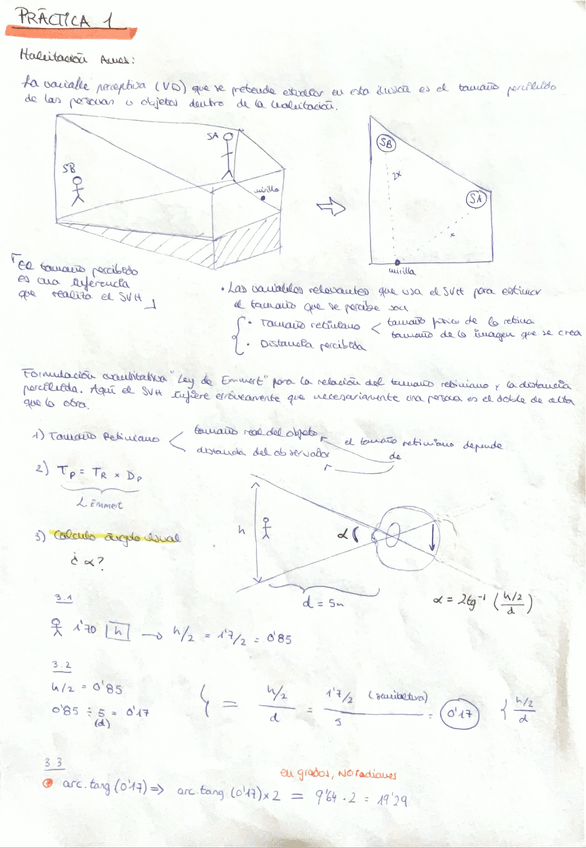 PRÁCTICA 1
Habitación Ames:
La variable perceptiva (VD) que se pretende estudiar en esta ilusión es el tamaño percibido
de las personas u objetos dentro de la habitación.
SA
SB
mirilla
SB
2x
SA
x
mirilla
"El tamaño percibido
es una inferencia
que realiza el SVH"
• Las variables relevantes que usa el SVH para estimar
el tamaño que se percibe son
• Tamaño retiniano < tamaño físico de la retina
tamaño de la imagen que se crea
• Distancia percibida
Formulación cuantitativa "Ley de Emmert" para la relación del tamaño retiniano y la distancia
percibida. Aquí el SVH infiere erróneamente que necesariamente una persona es el doble de alta
que la otra.
1) Tamaño Retiniano < tamaño real del objeto
distancia del observador
el tamaño retiniano depende
de
2) Tp = TR x Dp
L. Emmert
3) Cálculo ángulo visual
¿α?
h
α
d = 5m
α = 2tg⁻¹ (h/2 / d)
3.1
1'70 h → h/2 = 1'7/2 = 0'85
3.2
h/2 = 0'85
0'85 ÷ 5 = 0'17
(d)
{ = h/2 / d = 1'7/2 (semialtura) / 5 = 0'17 { h/2 / d
3.3
en grados, NO radianes
arc.tang (0'17) ⇒ arc.tang (0'17) x 2 = 9'64 · 2 = 19'29